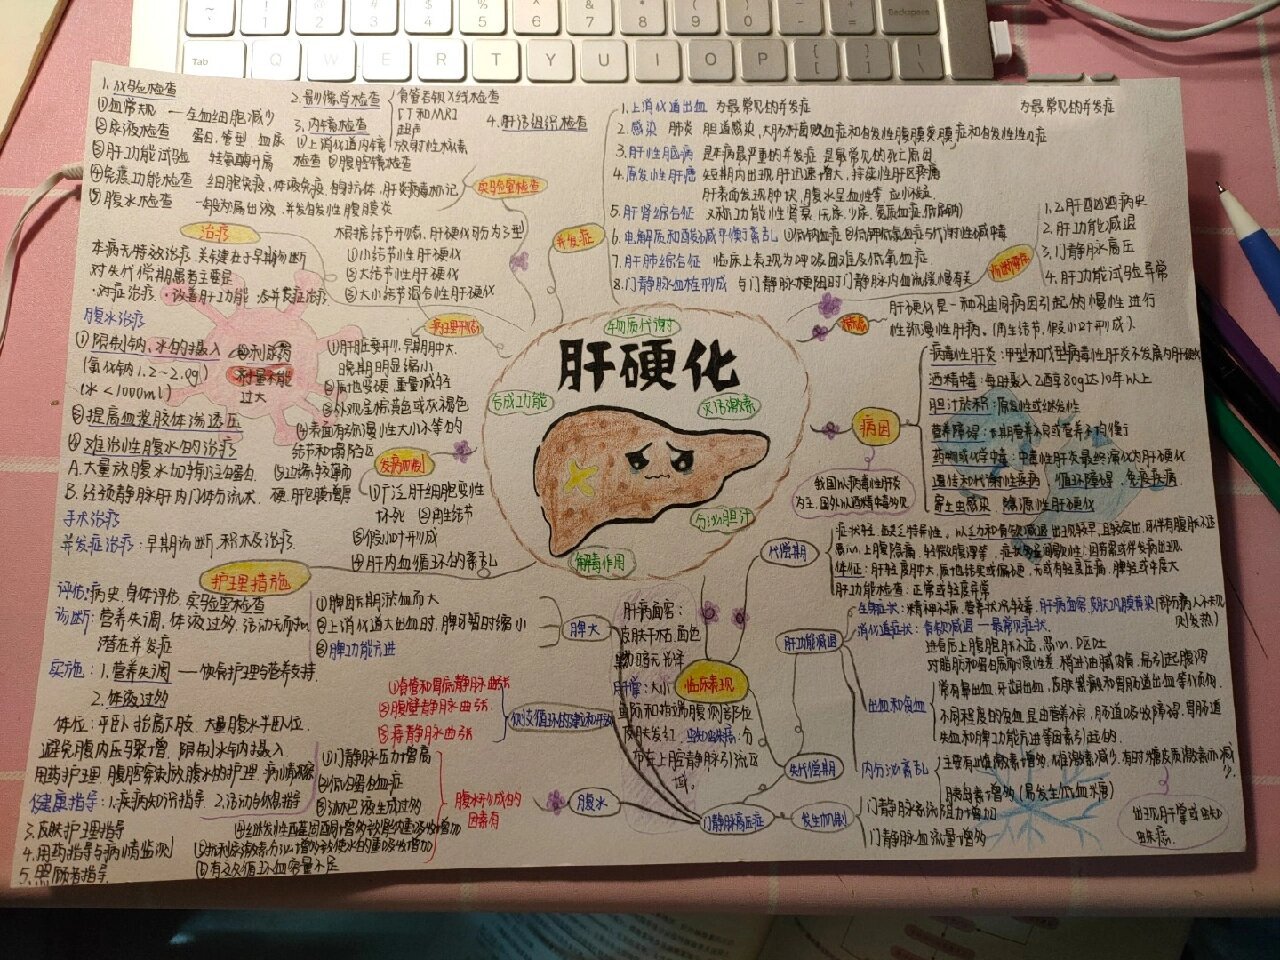 肝硬化
物质代谢
合成功能
灭活激素
分泌胆汁
解毒作用
实验室检查
1.化验检查
①血常规 — 全血细胞减少
②尿液检查 蛋白、管型、血尿
③肝功能试验 转氨酶升高
④免疫功能检查 细胞免疫、体液免疫、自身抗体、肝炎病毒标记
⑤腹水检查 一般为漏出液,并发自发性腹膜炎
2.影像学检查
食管吞钡X线检查
CT和MRI
超声
放射性核素
3.内镜检查
①上消化道内镜
检查 ②腹腔镜检查
4.肝活组织检查
并发症
1.上消化道出血 为最常见的并发症
为最常见的并发症
2.感染 肺炎 胆道感染,大肠杆菌败血症和自发性腹膜炎
3.肝性脑病 是本病最严重的并发症 是最常见的死亡原因
4.原发性肝癌 短期内出现肝迅速增大,持续性肝区疼痛
肝表面发现肿块,腹水呈血性等 应
5.肝肾综合征 又称功能性肾衰
6.电解质和酸碱平衡紊乱 ①低钠血症 ②低钾低氯血症与代谢性碱中毒
7.肝肺综合征 临床上表现为呼吸困难及低氧血症
8.门静脉血栓形成 与门静脉梗阻时门静脉内血流缓慢有关
诊断要点
1.
2.肝功能减退
3.门静脉高压
4.肝功能试验异常
概念
肝硬化是一种由不同病因引起的慢性进行
性弥漫性肝病。(再生结节,假小叶形成).
病因
病毒性肝炎:甲型和戊型病毒性肝炎不发展为肝硬化
酒精中毒:每日摄入乙醇80g达10年以上
胆汁淤积 原发性或继发性
营养障碍:长期营养不良或营养不均衡
药物或化学中毒:中毒性肝炎最终演化为肝硬化
遗传和代谢性疾病 循环障碍、免疫疾病
寄生虫感染 隐源性肝硬化
我国以病毒性肝炎
为主,国外以酒精中毒多见
治疗
本病无特效治疗 关键在于早期诊断
对失代偿期患者主要是
对症治疗、改善肝功能
腹水治疗
①限制钠、水的摄入
(氯化钠1.2-2.0g)
(水<1000ml)
②利尿药
剂量不能
过大
③提高血浆胶体渗透压
④难治性腹水的治疗
A.大量放腹水加输注白蛋白
B.经颈静脉肝内门体分流术
手术治疗
并发症治疗:早期诊断,积极治疗
病理形态
根据结节形态,肝硬化可分为3型
①小结节性肝硬化
②大结节性肝硬化
③大小结节混合性肝硬化
①肝脏变形,早期肿大,
晚期明显缩小
②质地变硬,重量减轻
③外观呈棕黄色或灰褐色
④表面有弥漫性大小不等的
结节和塌陷区
⑤边缘较薄而
硬 肝包膜增厚
发病机制
①广泛肝细胞变性
坏死 ②再生结节
③假小叶形成
④肝内血循环的紊乱
护理措施
评估:病史,身体评估,实验室检查
诊断:营养失调,体液过多,活动无耐力
潜在并发症
实施:1.营养失调 — 饮食护理与营养支持
2.体液过多
体位:平卧,抬高下肢,大量腹水半卧位.
避免腹内压骤增,限制水钠摄入
用药护理 腹腔穿刺放腹水的护理 病情观察
健康指导:1.疾病知识指导 2.活动与休息指导
3.皮肤护理指导
4.用药指导与病情监测
5.照顾者指导
脾大
①脾因长期淤血而大
②上消化道大出血时,脾可暂时缩小
③脾功能亢进
侧支循环的建立和开放
①食管和胃底静脉曲张
②腹壁静脉曲张
③痔静脉曲张
腹水
腹水形成的
因素有
①门静脉压力增高
②低白蛋白血症
③淋巴液生成过多
④继发性醛固酮增多致肾钠重吸收增加
⑤抗利尿激素分泌增多致使水的重吸收增加
⑥有效循环血容量不足
肝病面容:
皮肤干枯,面色
黝暗无光泽
肝掌:大小
鱼际和指端腹侧部位
皮肤发红 蜘蛛痣:分
布在上腔静脉引流区
域.
临床表现
代偿期
症状轻,缺乏特异性.以乏力和食欲减退出现较早,且较突出,可伴有腹胀不适
恶心,上腹隐痛,轻微腹泻等.
体征:肝轻度肿大,质地结实或偏硬,无或有轻度压痛,脾轻或中度大
肝功能检查:正常或轻度异常
失代偿期
肝功能减退
全身症状:精神不振,营养状况较差,肝病面容,皮肤巩膜黄染
消化道症状:食欲减退 — 最常见症状.
进食后上腹饱胀不适、恶心、呕吐
对脂肪和蛋白质耐受性差 稍进油腻肉食,易引起腹泻
出血和贫血
常有鼻出血,牙龈出血,皮肤紫癜和胃肠道出血等倾向.
不同程度的贫血是由营养不良,肠道吸收障碍,胃肠道
失血和脾功能亢进等因素引起的.
内分泌紊乱
主要有雌激素增多,雄激素减少.有时糖皮质激素亦减少.
胰岛素增多(易发生低血糖)
出现肝掌或蜘
蛛痣.
门静脉高压症
发生机制
门静脉系统阻力增加
门静脉血流量增多